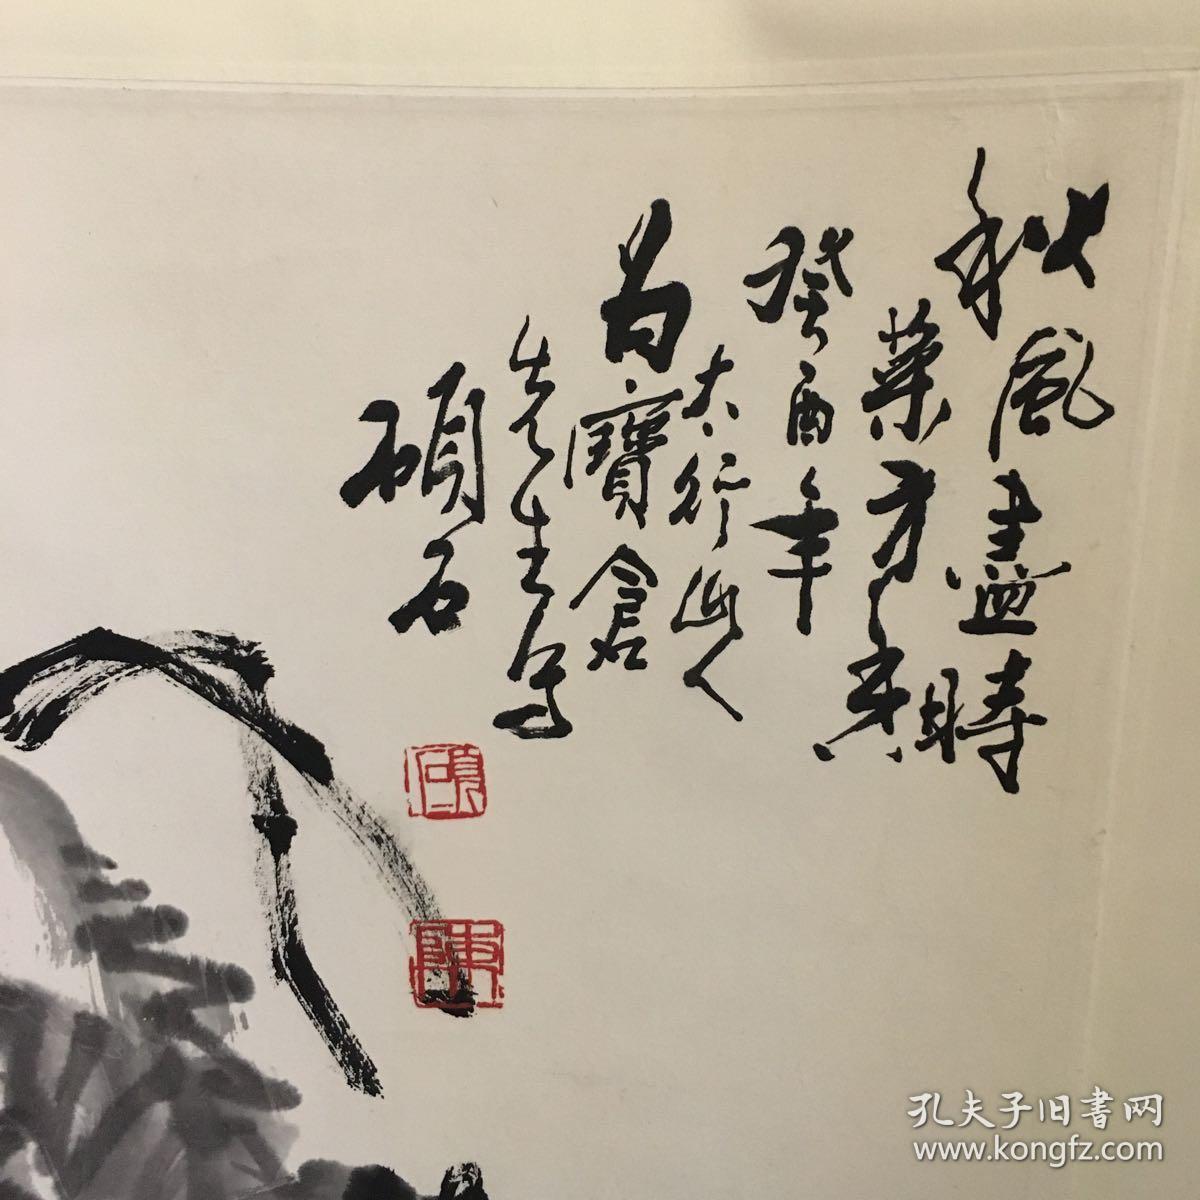 秋風盡時
葉方黃
癸酉年
太行山人
為寶倉
先生写
碩石
碩石
陳
孔夫子旧書网
www.kongfz.com